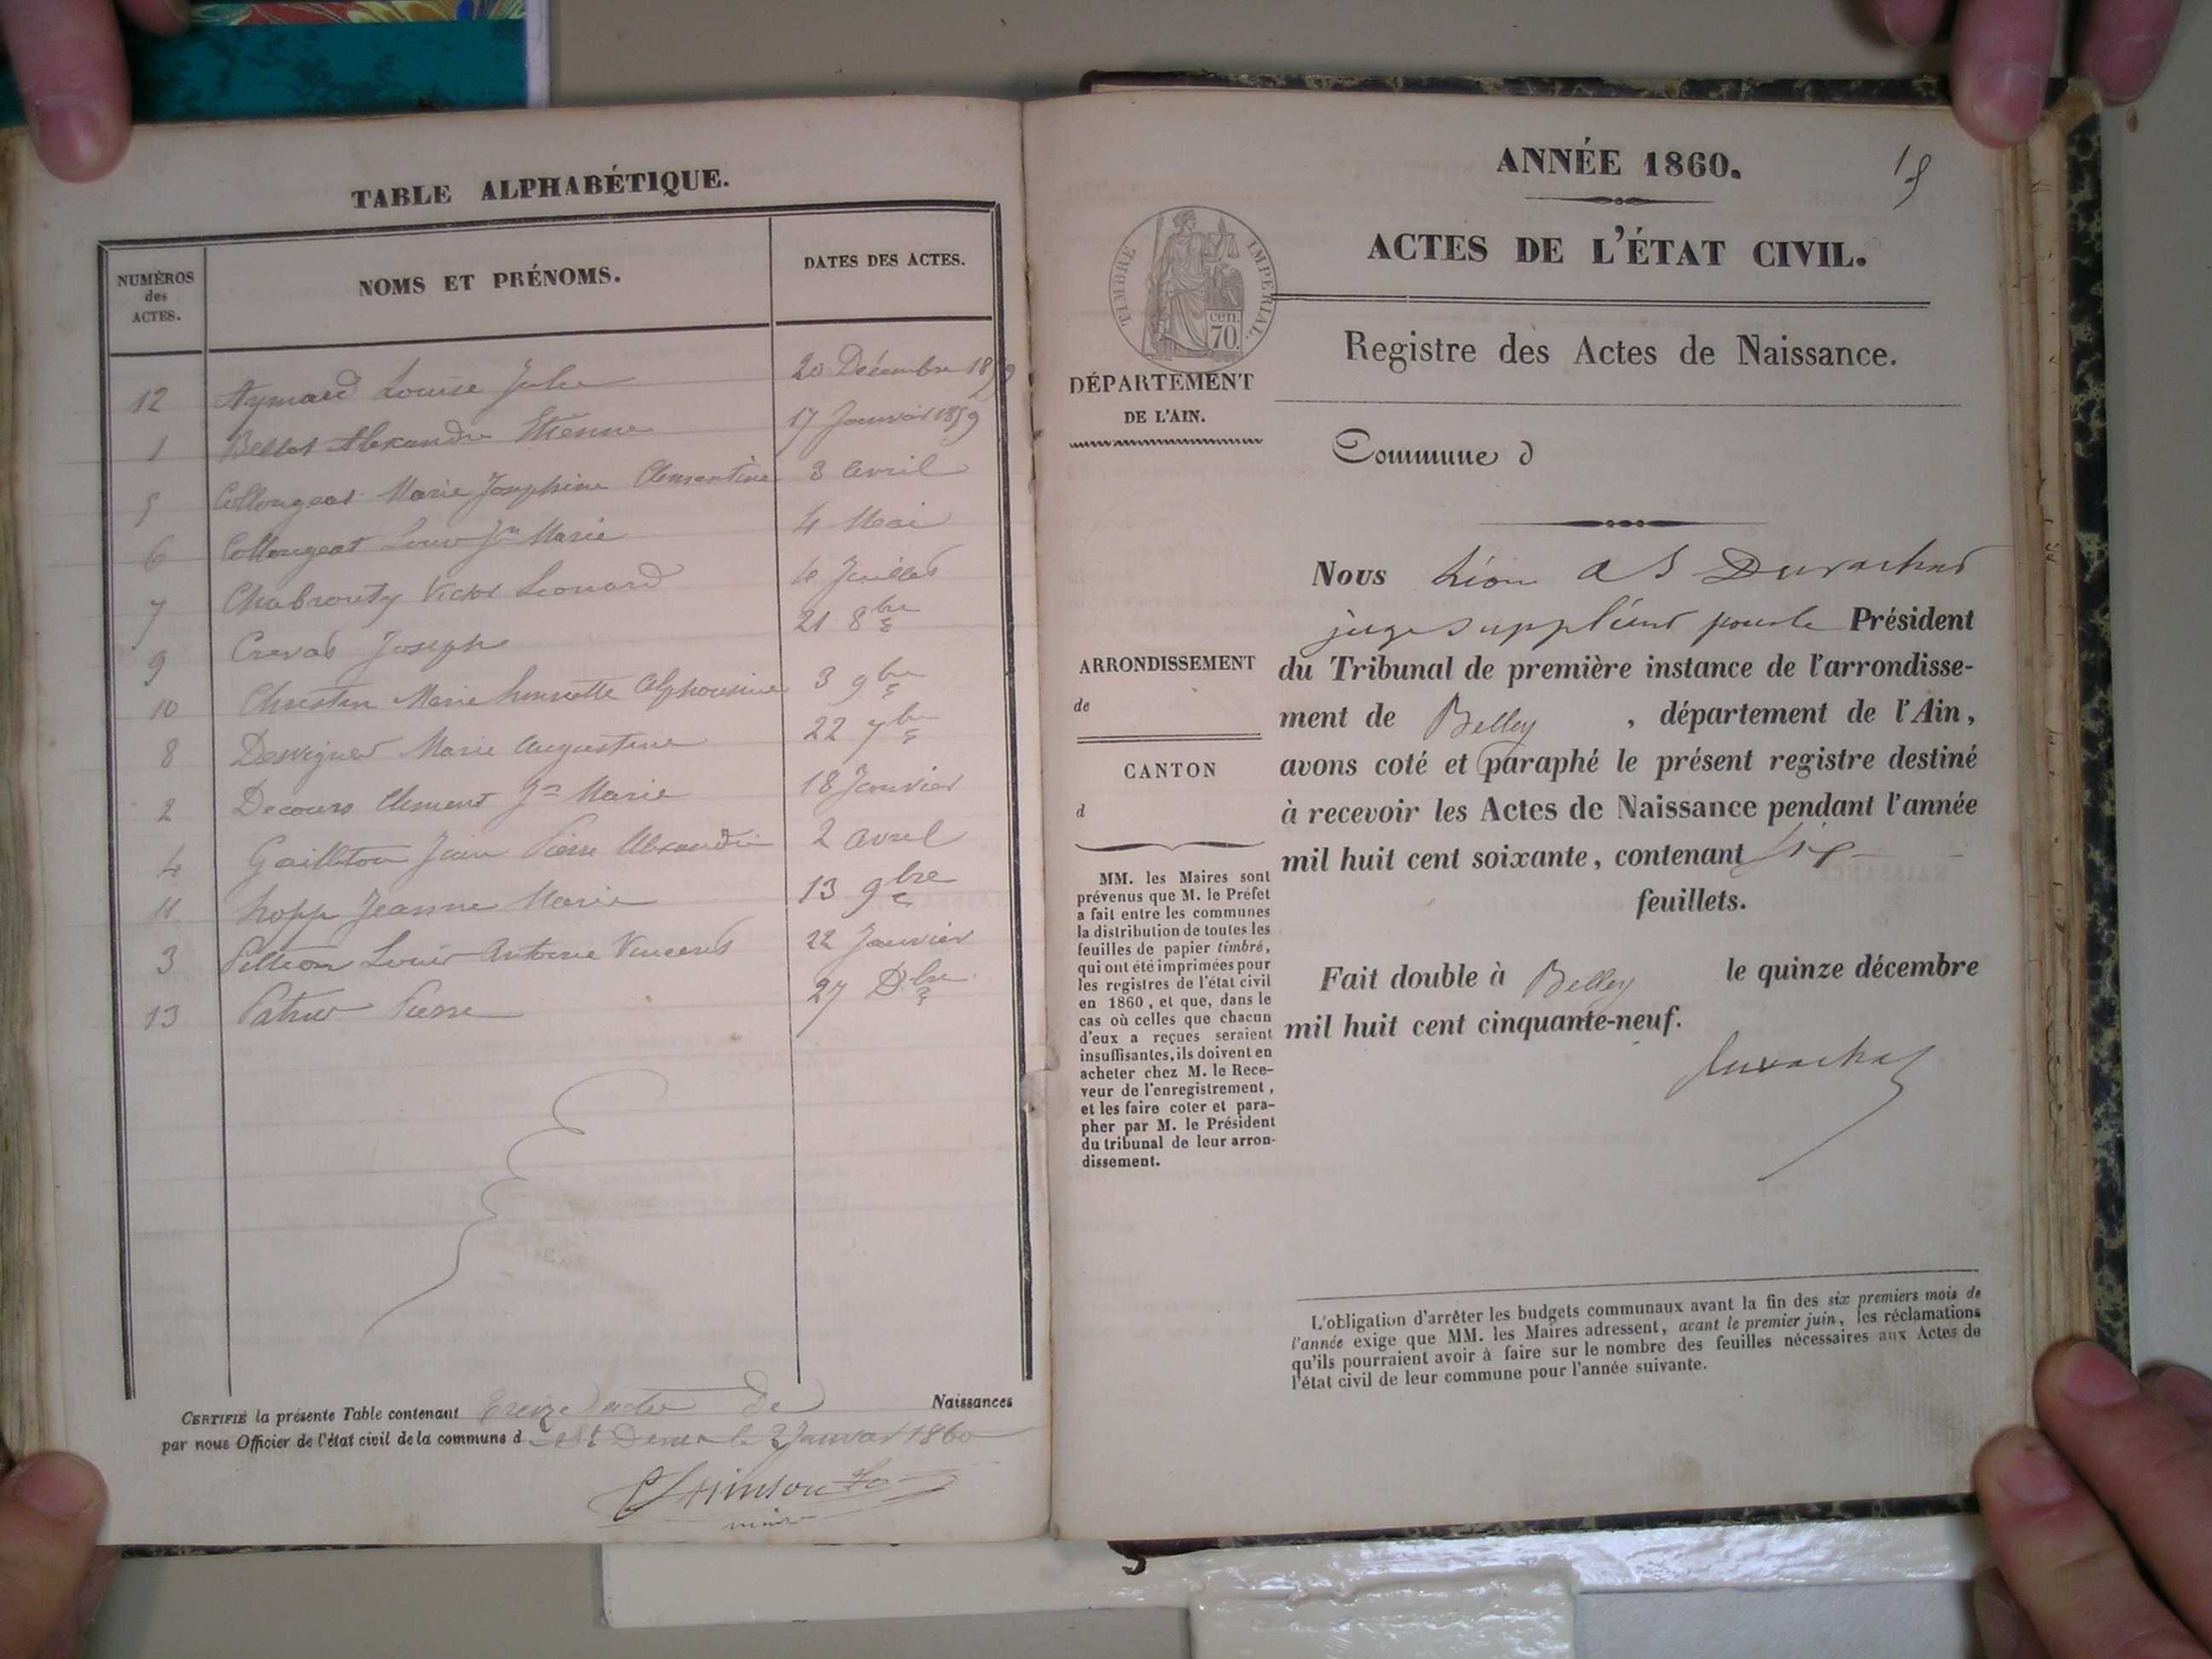 TABLE ALPHABÉTIQUE.
NUMÉROS
des
ACTES.
NOMS ET PRÉNOMS.
DATES DES ACTES.
12 Aymard Louise Julie 20 Décembre 1859
1 Bellot Alexandre Etienne 17 Janvier 1859
5 Collongeat Marie Josephine Clementine 3 avril
6 Collongeat Louis Jn Marie 4 Mai
7 Chabrouty Victor Leonard 4 Juillet
9 Crevat Joseph 21 8bre
10 Christin Marie henriette Alphonsine 3 9bre
8 Desvignes Marie Augustine 22 7bre
2 Decours Clement Jn Marie 18 Janvier
4 Gailleton Jean Pierre Alexandre 2 avril
11 hopp Jeanne Marie 13 9bre
3 Louis Antoine Vincent 22 Janvier
13 Pierre 27 Dbre
CERTIFIÉ la présente Table contenant Treize actes de Naissances
par nous Officier de l'état civil de la commune d St Denis le 2 Janvier 1860
maire
ANNÉE 1860.
ACTES DE L'ÉTAT CIVIL.
TIMBRE IMPERIAL.
cen.
70.
Registre des Actes de Naissance.
DÉPARTEMENT
DE L'AIN.
Commune d
ARRONDISSEMENT
de
CANTON
d
MM. les Maires sont
prévenus que M. le Préfet
a fait entre les communes
la distribution de toutes les
feuilles de papier timbré,
qui ont été imprimées pour
les registres de l'état civil
en 1860, et que, dans le
cas où celles que chacun
d'eux a reçues seraient
insuffisantes, ils doivent en
acheter chez M. le Rece-
veur de l'enregistrement,
et les faire coter et para-
pher par M. le Président
du tribunal de leur arron-
dissement.
Nous Léon Duvachat
juge suppléant pour le Président
du Tribunal de première instance de l'arrondisse-
ment de Belley, département de l'Ain,
avons coté et paraphé le présent registre destiné
à recevoir les Actes de Naissance pendant l'année
mil huit cent soixante, contenant six
feuillets.
Fait double à Belley le quinze décembre
mil huit cent cinquante-neuf.
Duvachat
L'obligation d'arrêter les budgets communaux avant la fin des six premiers mois de
l'année exige que MM. les Maires adressent, avant le premier juin, les réclamations
qu'ils pourraient avoir à faire sur le nombre des feuilles nécessaires aux Actes de
l'état civil de leur commune pour l'année suivante.